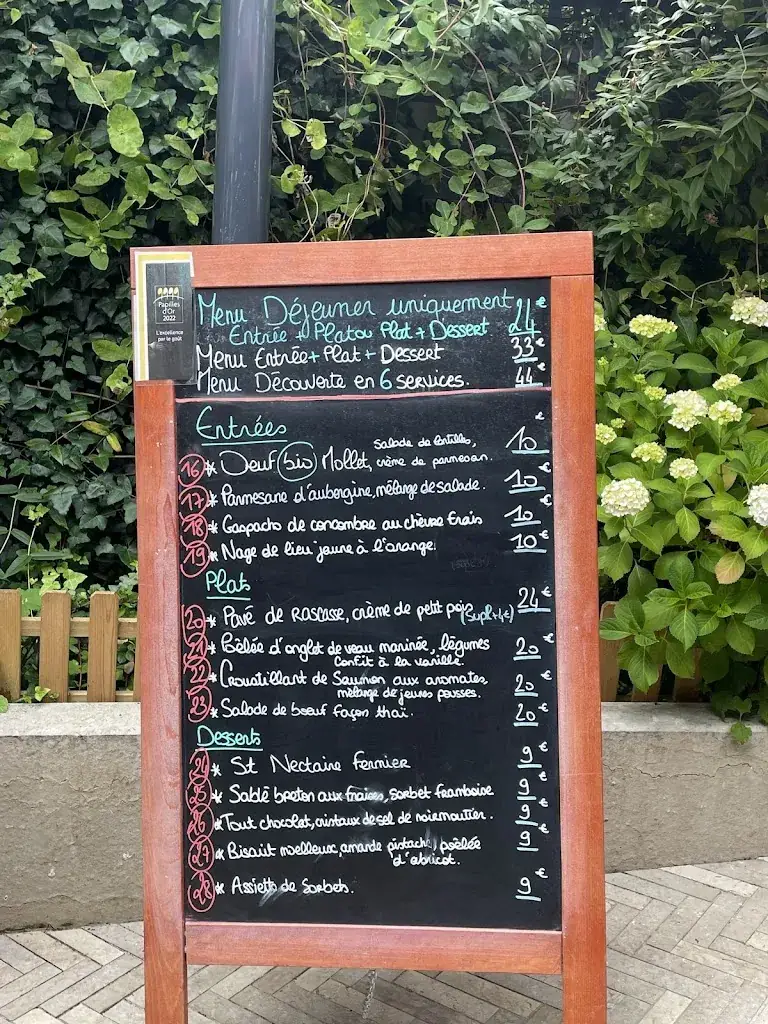 Papilles
d'Or
2022
L'excellence
par le goût
Menu Déjeuner uniquement
Entrée + Plat ou Plat + Dessert 24€
Menu Entrée + Plat + Dessert 33€
Menu Découverte en 6 services. 44€
Entrées
16 * Oeuf bio Mollet, salade de lentilles, crème de parmesan. 10€
17 * Parmesane d'aubergine, mélange de salade. 10€
18 * Gaspacho de concombre au chèvre frais 10€
19 * Nage de lieu jaune à l'orange. 10€
Plats
20 * Pavé de Rascasse, crème de petit pois (Supl+4€) 24€
21 * Poêlée d'onglet de veau marinée, légumes
confit à la vanille. 20€
22 * Croustillant de Saumon aux aromates,
mélange de jeunes pousses. 20€
23 * Salade de boeuf façon thaï. 20€
Desserts
* St Nectaire fermier 9€
* Sablé breton aux fraises, sorbet framboise 9€
* Tout chocolat, cristaux de sel de noirmoutier. 9€
27 * Biscuit moelleux, amande pistache, poêlée
d'abricot. 9€
28 * Assiette de Sorbets. 9€